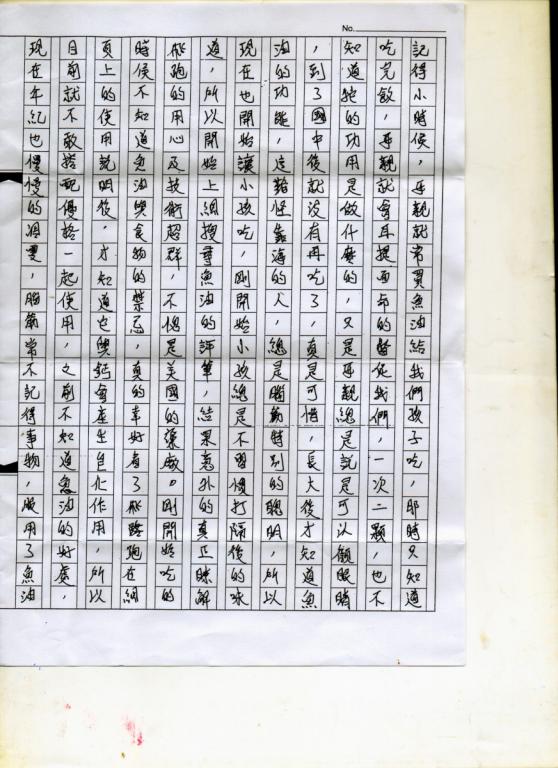 No.
記得小時候，母親就常買魚油給我們孩子吃，那時只知道
吃完飯，母親就會耳提面命的督促我們，一次二顆，也不
知道牠的功用是做什麼的，只是母親總是說是可以顧眼睛
，到了國中後就沒有再吃了，真是可惜，長大後才知道魚
油的功能，這難怪靠海的人，總是腦筋特別的聰明，所以
現在也開始讓小孩吃，剛開始小孩總是不習慣打隔後的味
道，所以開始上網搜尋魚油的評筆，結果意外的真正瞭解
的用心及技術超群，不愧是美國的藥廠。剛開始吃的
時候不知道魚油與食物的禁忌，真的幸好有了 跑在網
頁上的使用說明後，才知道它與鈣會產生皂化作用，所以
目前就不敢搭配優格一起使用，之前不知道魚油的好處，
現在年紀也慢慢的凋零，腦筋常不記得事物，服用了魚油